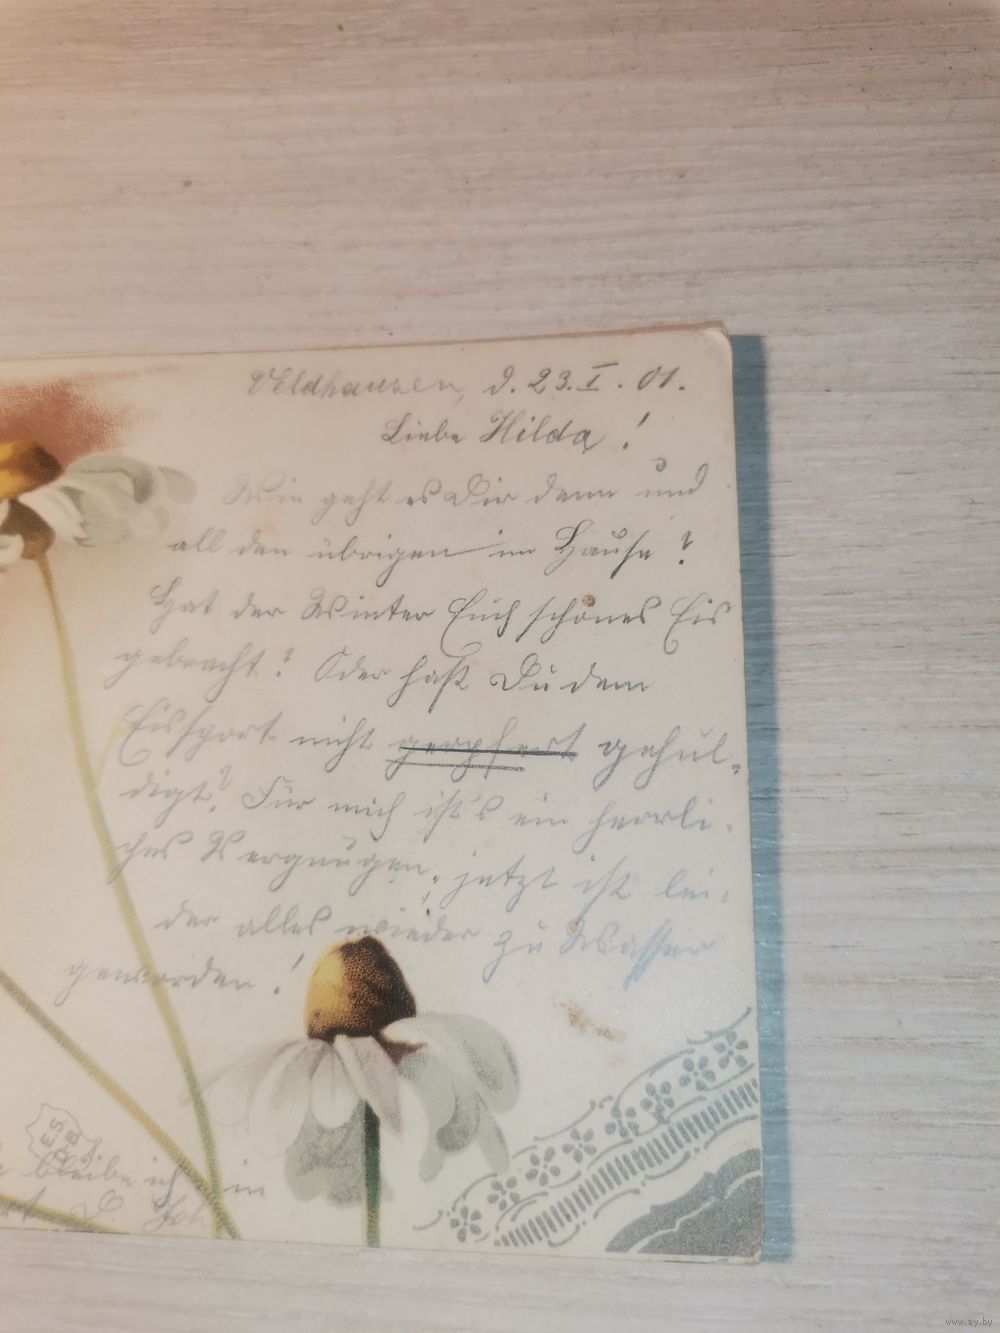 Veldhausen, d. 23. I. 01.
Liebe Hilda!
Wie geht es Dir denn und
all den übrigen im Hause?
Hat der Winter Euch schönes Eis
gebracht? Oder hast Du dem
Eissport nicht gehul-
digt? Für mich ist's ein herrli-
ches Vergnügen, jetzt ist lei-
der alles wieder zu Wasser
geworden!
E.S.
bleibe ich in
www.ay.by